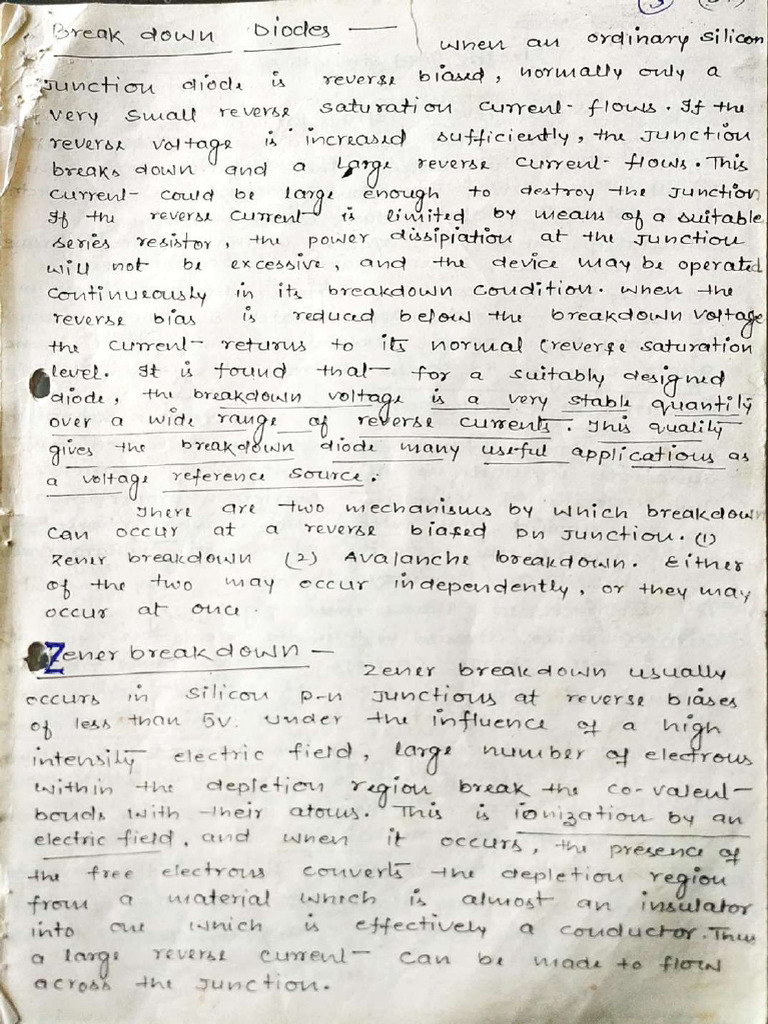 Break down Diodes — when an ordinary silicon
junction diode is reverse biased, normally only a
very small reverse saturation current flows. If the
reverse voltage is increased sufficiently, the junction
breaks down and a large reverse current flows. This
current could be large enough to destroy the junction
If the reverse current is limited by means of a suitable
series resistor, the power dissipiation at the junction
will not be excessive, and the device may be operated
continueously in its breakdown condition. when the
reverse bias is reduced below the breakdown voltage
the current returns to its normal (reverse saturation
level. It is found that for a suitably designed
diode, the breakdown voltage is a very stable quantity
over a wide range of reverse currents. This quality
gives the breakdown diode many useful applications as
a voltage reference source.
There are two mechanisms by which breakdown
can occur at a reverse biased pn junction. (1)
Zener breakdown (2) Avalanche breakdown. Either
of the two may occur independently, or they may
occur at once.
Zener breakdown — Zener breakdown usually
occurs in silicon p-n junctions at reverse biases
of less than 5v. under the influence of a high
intensity electric field, large number of electrons
within the depletion region break the co-valent
bonds with their atoms. This is ionization by an
electric field, and when it occurs, the presence of
the free electrons converts the depletion region
from a material which is almost an insulator
into one which is effectively a conductor. Thus
a large reverse current can be made to flow
across the junction.